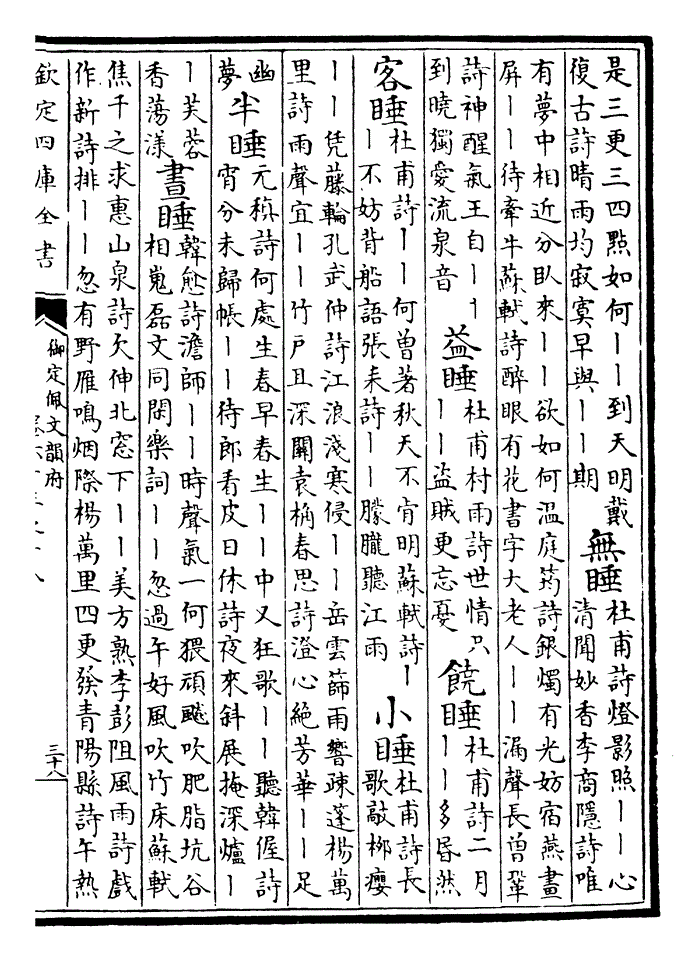 是三更三四點如何丨丨到天明戴
復古詩晴雨均寂寞早與丨丨期
無睡
杜甫詩燈影照丨丨心
清聞妙香李商隱詩唯
有夢中相近分臥來丨丨欲如何溫庭筠詩銀燭有光妨宿燕畫
屏丨丨待牽牛蘇軾詩醉眼有花書字大老人丨丨漏聲長曾鞏
詩神醒氣王自丨丨
到曉獨愛流泉音
益睡
杜甫村雨詩世情只
丨丨盜賊更忘憂
饒睡
杜甫詩二月
丨丨多昏然
客睡
杜甫詩丨丨何曾著秋天不肯明蘇軾詩丨
丨不妨背船語張耒詩丨丨朦朧聽江雨
小睡
杜甫詩長
歌敲柳癭
丨丨凭藤輪孔武仲詩江浪淺寒侵丨丨岳雲篩雨響疎蓬楊萬
里詩雨聲宜丨丨竹戶且深關袁桷春思詩澄心絶芳華丨丨足
幽
夢
半睡
元稹詩何處生春早春生丨丨中又狂歌丨丨聽韓偓詩
宵分未歸帳丨丨待郎看皮日休詩夜來斜展掩深爐丨
丨芙蓉
香蕩漾
晝睡
韓愈詩澹師丨丨時聲氣一何猥頑飇吹肥脂坑谷
相嵬磊文同閑樂詞丨丨忽過午好風吹竹床蘇軾
焦千之求惠山泉詩欠伸北窓下丨丨美方熟李彭阻風雨詩戲
作新詩排丨丨忽有野雁鳴烟際楊萬里四更發青陽縣詩午熱
欽定四庫全書
御定佩文韻府
三十八